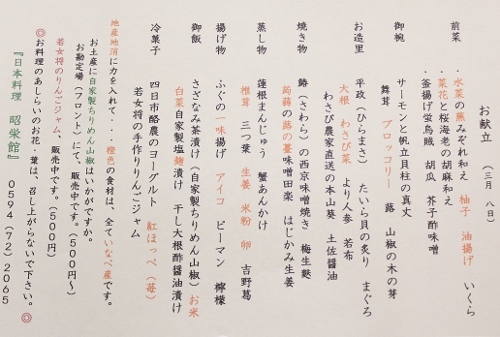 お献立　（三月　八日）
前菜
・水菜の蕪みぞれ和え　柚子　油揚げ　いくら
・菜花と桜海老の胡麻和え
・釜揚げ蛍烏賊　胡瓜　芥子酢味噌
御椀
サーモンと帆立貝柱の真丈
舞茸　ブロッコリー　蕗　山椒の木の芽
お造里
平政（ひらまさ）　たいら貝の炙り　まぐろ
大根　わさび菜　より人参　若布
わさび農家直送の本山葵　土佐醤油
焼き物
鰆（さわら）の西京味噌焼き　梅生麩
蒟蒻の蕗の薹味噌田楽　はじかみ生姜
蒸し物
蓮根まんじゅう　蟹あんかけ
椎茸　三つ葉　生姜　米粉　卵　吉野葛
揚げ物
ふぐの一味揚げ　アイコ　ピーマン　檸檬
御飯
さざなみ茶漬け（自家製ちりめん山椒）お米
白菜自家製塩麹漬け　干し大根酢醤油漬け
冷菓子
四日市酪農のヨーグルト　紅ほっぺ（苺）
若女将の手作りりんごジャム
地産地消に力を入れて・・・橙色の食材は、全ていなべ産です。
お土産に自家製ちりめん山椒はいかがですか。
お勘定場（フロント）にて、販売中です。（500円～）
若女将のりんごジャム、販売中です。（500円）
◎お料理のあしらいのお花・葉は、召し上がらないで下さい。◎
『日本料理　昭栄館』　0594（72）2065